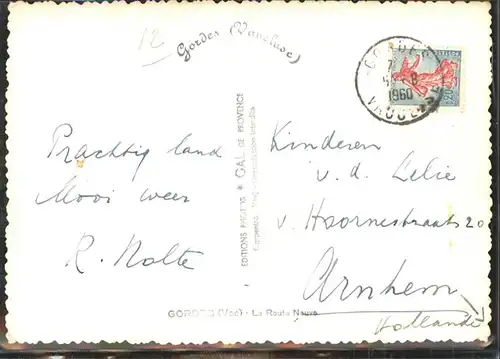 12
Gordes (Vaucluse)
GORDES
1960
VAUCLUSE
0,20
Prachtig land
Mooi weer
R. Nolte
EDITIONS PHOTOS * GAL DE PROVENCE
Kinderen
v. d. Lelie
v. Hoornestraat 20
Arnhem
Hollande
GORDES (Vse) - La Route Neuve